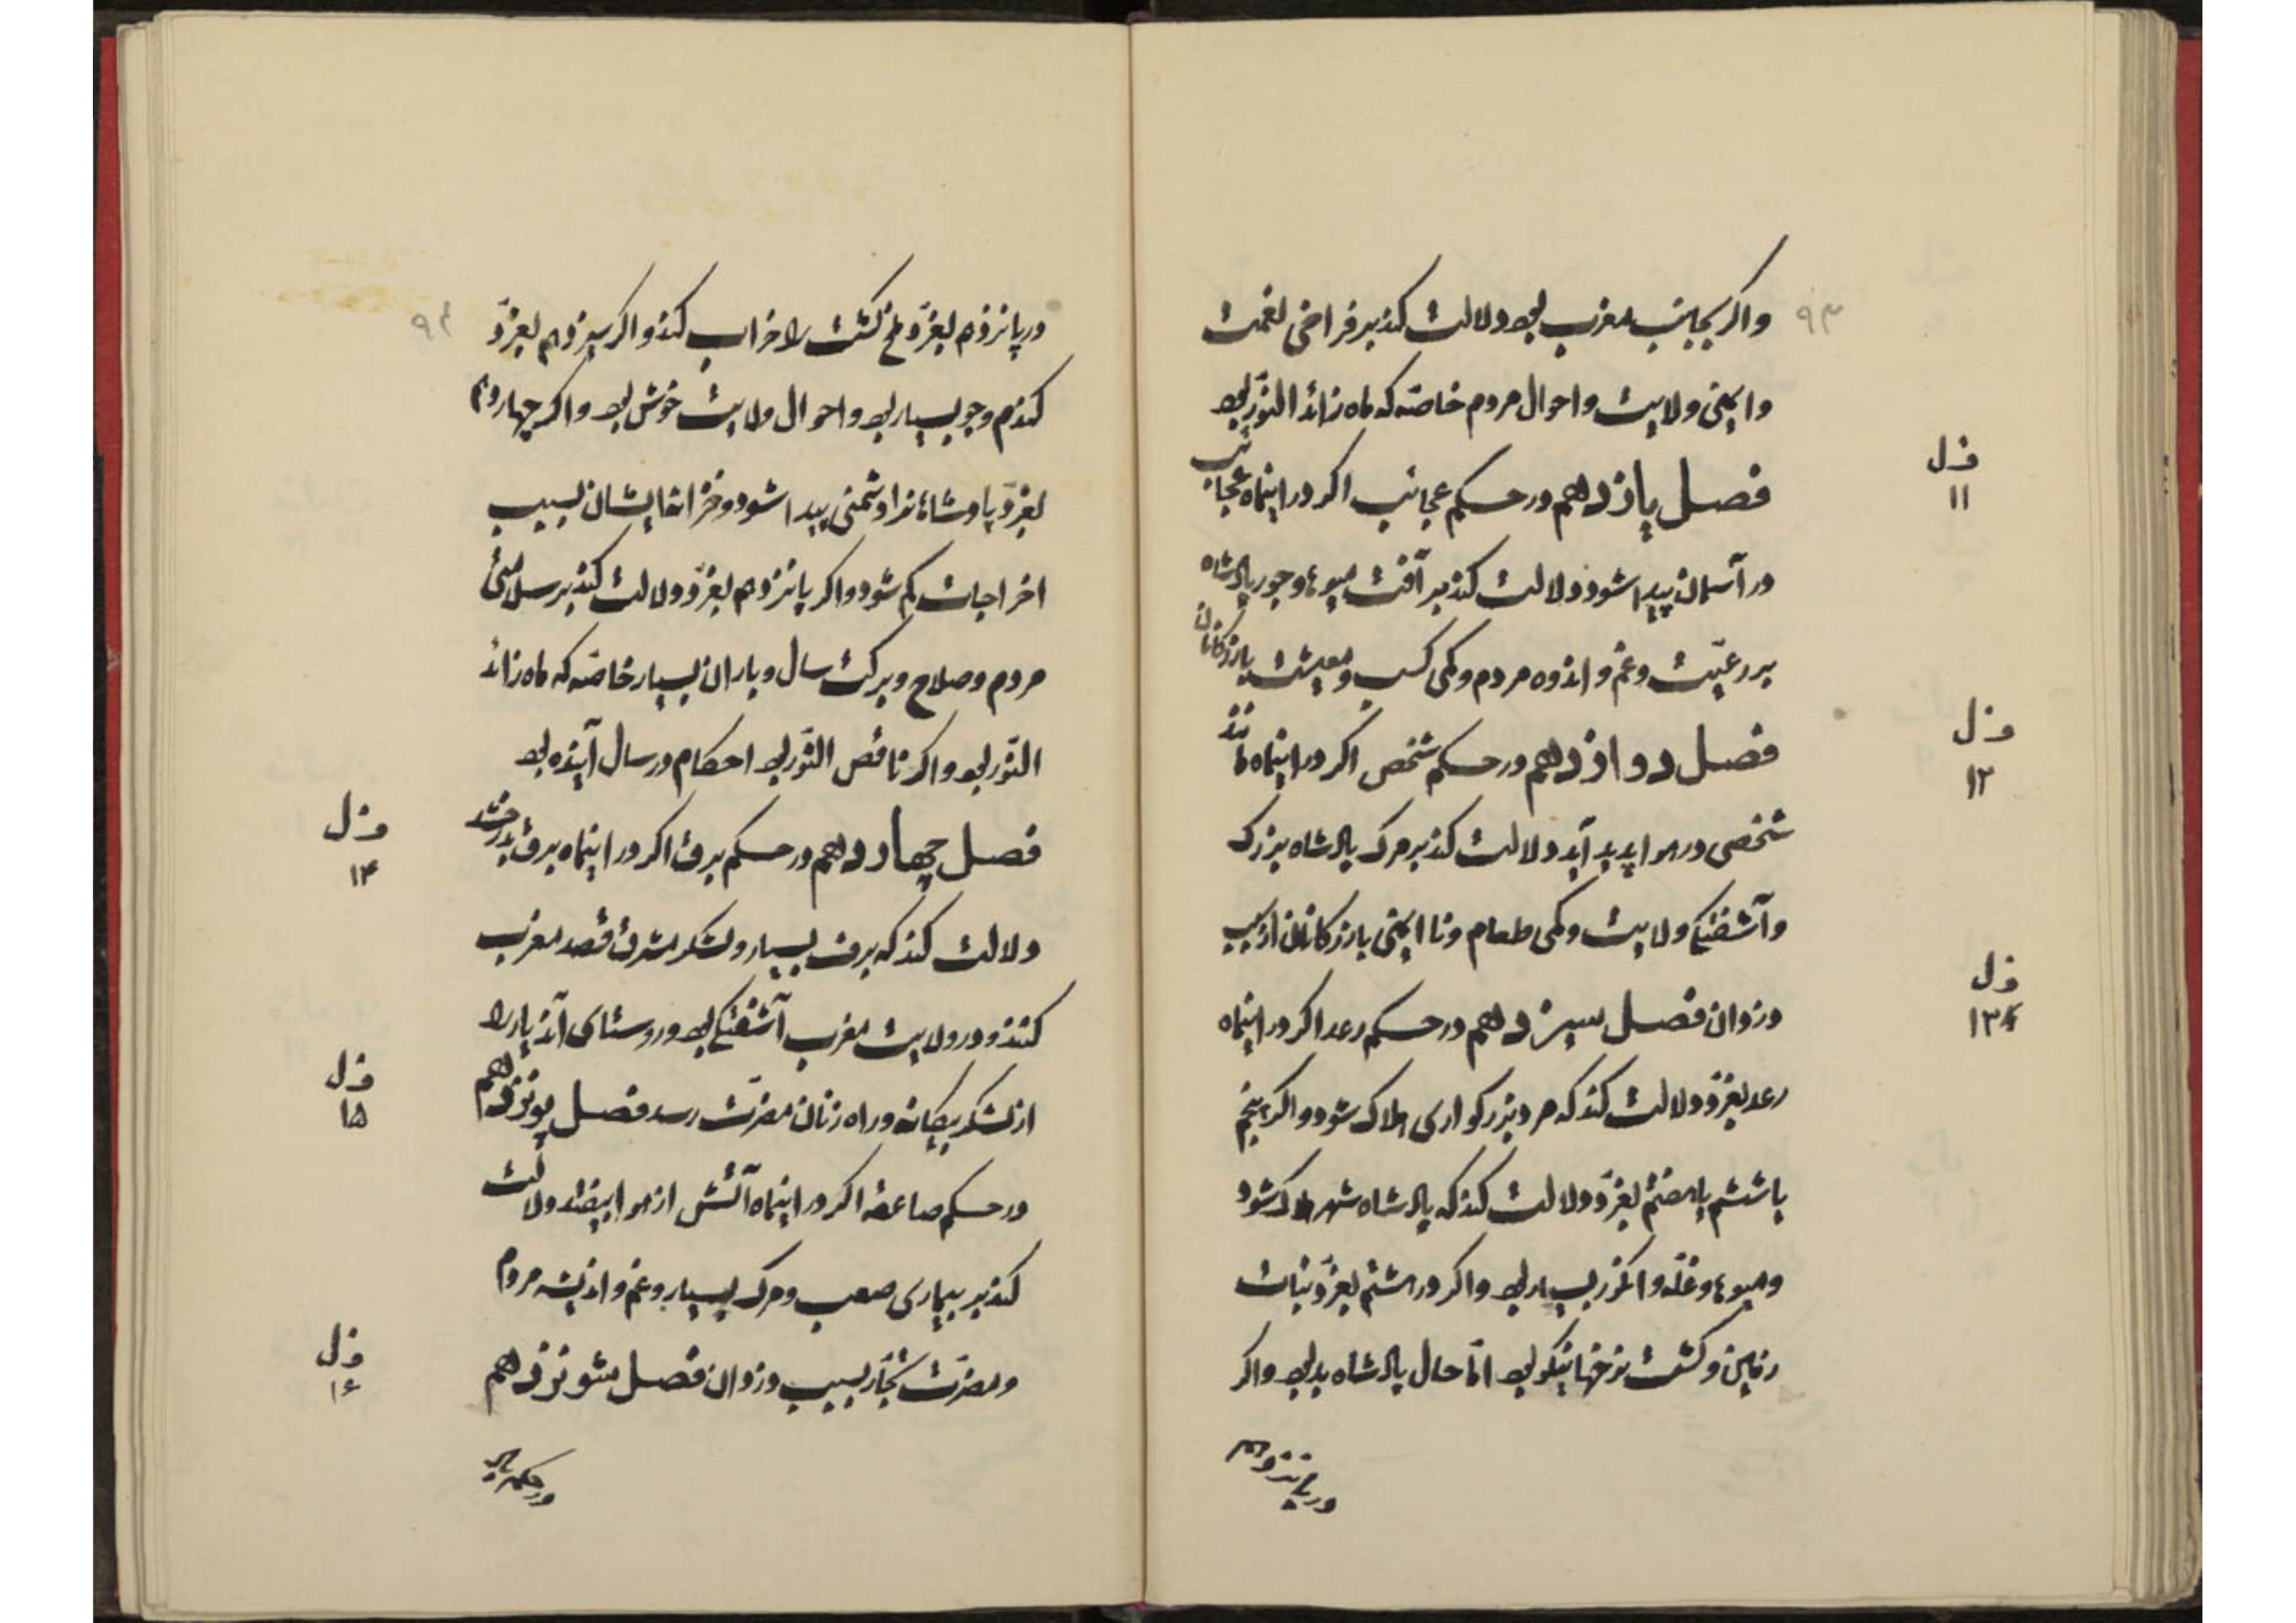 ۹۳
واکر بجانب مغرب بود دلالت کند بر فراخی نعمت
وایمنی ولایت واحوال مردم خاصّه که ماه زائد النّور بود
فصل یازدهم در حکم عجائب اکر در اینماه عجائب
فصل
۱۱
در آسمان پیدا شود دلالت کند بر آفت میوها وجور پادشاه
بر رعیّت وغم و اندوه مردم وکمی کسب ومعیشت بازرکانان
فصل دوازدهم در حکم شخص اکر در اینماه مانند
فصل
۱۲
شخصی در هوا پدید آید دلالت کند بر مرک پادشاه بزرک
وآشفتکی ولایت وکمی طعام ونا ایمنی بازرکانان از سبب
دزدان فصل سیزدهم در حکم رعد اکر در اینماه
فصل
۱۳
رعد بغرّد دلالت کند که مرد بزرکواری هلاک شود واکر پنجم
یا ششم یا هفتم بغرّد دلالت کند که پادشاه شهر هلاک شود
ومیوها وغلّه وانکور بسیار بود واکر در هشتم بغرّد نبات
زمین وکشت نرخها نیکو بود امّا حال پادشاه بد بود واکر
در پانزدهم
در پانزدهم بغرّد ملخ کشت را خراب کند واکر سیزدهم بغرّد
کندم وجو بسیار بود واحوال ولایت خوش بود واکر چهاردهم
بغرّد پادشاهانرا دشمنی پیدا شود وخزانها ایشان بسبب
اخراجات کم شود واکر پانزدهم بغرّد دلالت کند بر سلامتی
مردم وصلاح وبرکت سال وباران بسیار خاصّه که ماه زائد
النّور بود واکر ناقص النّور بود احکام در سال آینده بود
فصل چهاردهم در حکم برق اکر در اینماه برق بدرخشد
فصل
۱۴
دلالت کند که برف بسیار ولشکر مشرق قصد مغرب
کنند ودر ولایت مغرب آشفتکی بود وروستای آندیار را
از لشکر بیکانه وراه زنان مضرّت رسد فصل پونزدهم
فصل
۱۵
در حکم صاعقه اکر در اینماه آتش از هوا بیفتد دلالت
کند بر بیماری صعب ومرک بسیار وغم واندیشه مردم
ومضرّت تجّار بسبب دزدان فصل شونزدهم
فصل
۱۶